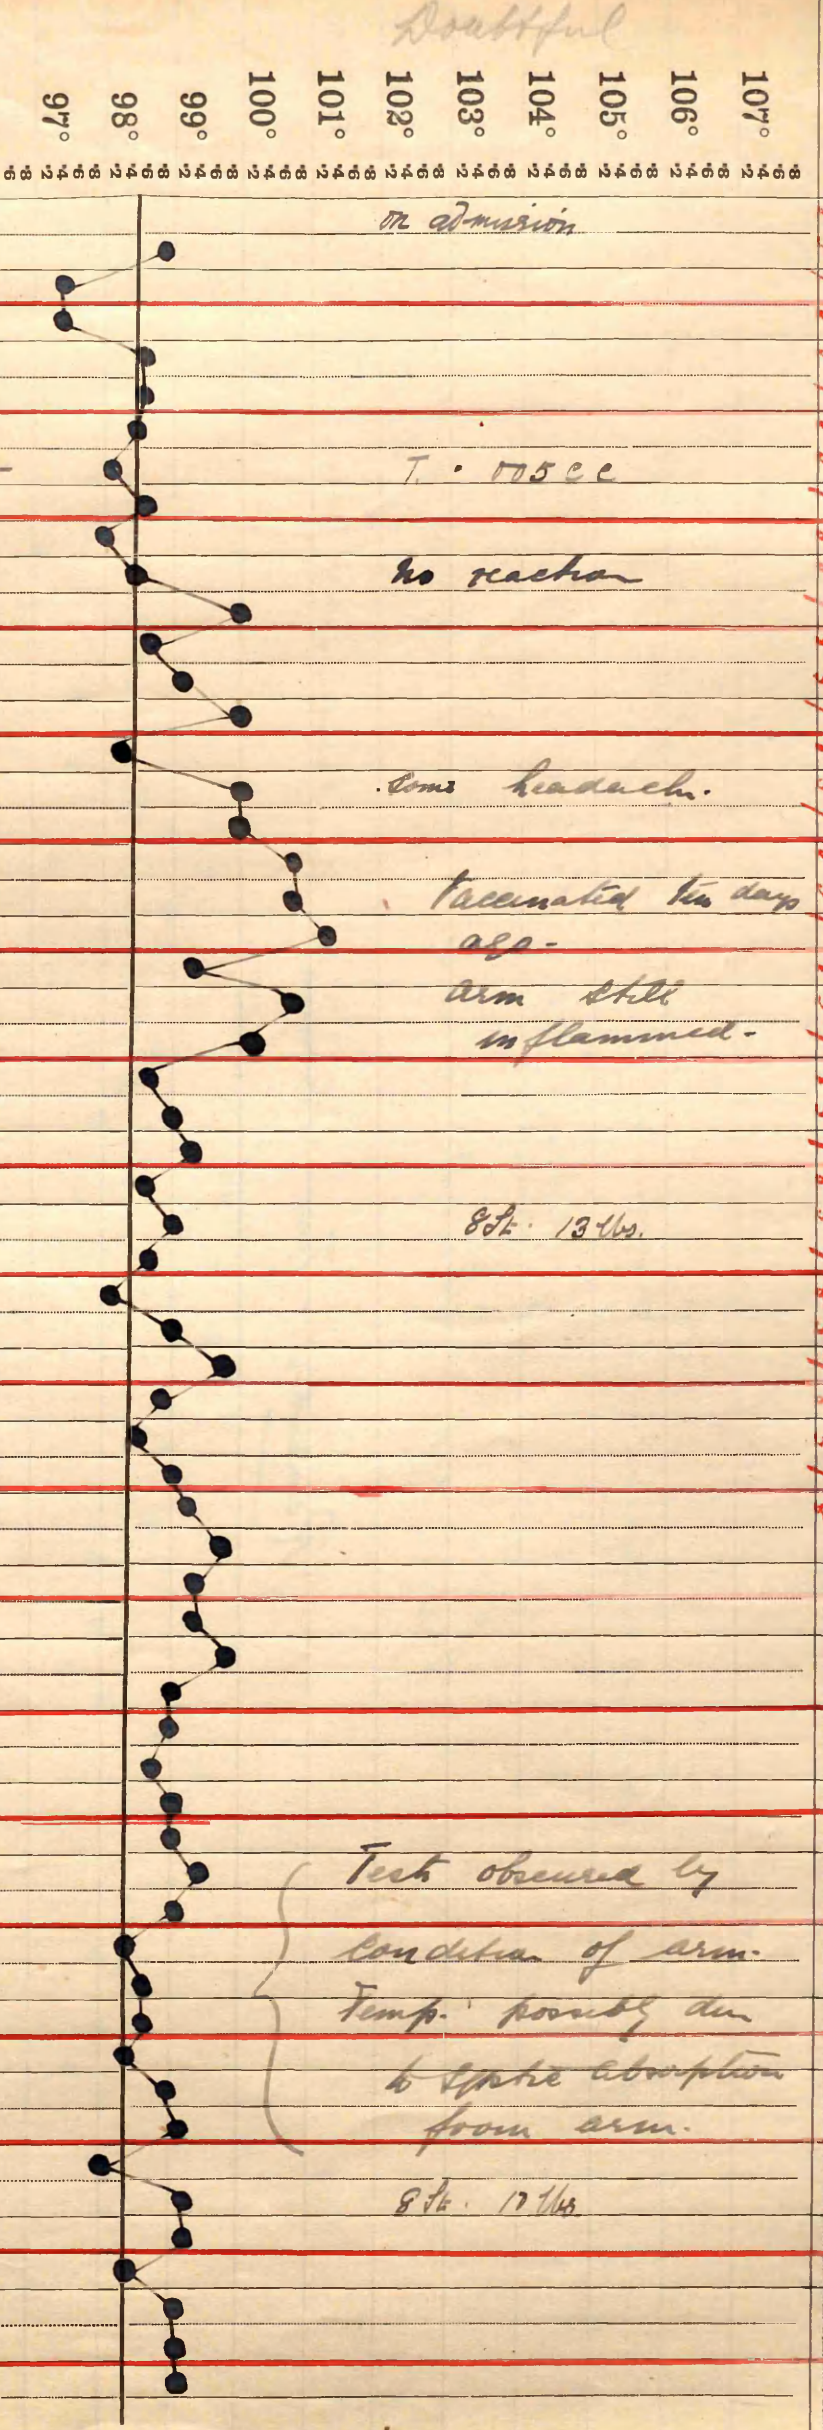 Doubtful
97° 98° 99° 100° 101° 102° 103° 104° 105° 106° 107°
on admission
T. . 005 cc
no reaction
some headach.
Vaccinated ten days
ago -
arm still
inflammed -
8 St. 13 lbs.
Test obscured by
Condition of arm.
Temp. possibly due
to septic absorption
from arm.
8 St. lbs.